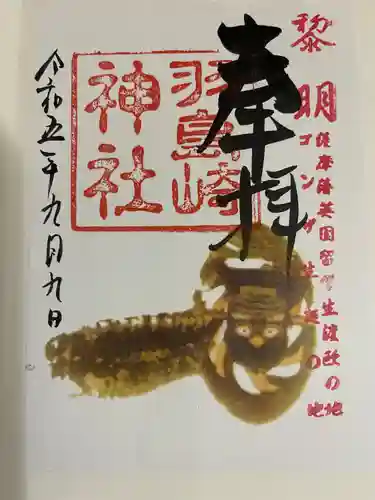 黎明
薩摩藩英国留学生渡欧の地
ゴンザ生誕の地
奉拝
羽島崎
神社
令和五年九月九日